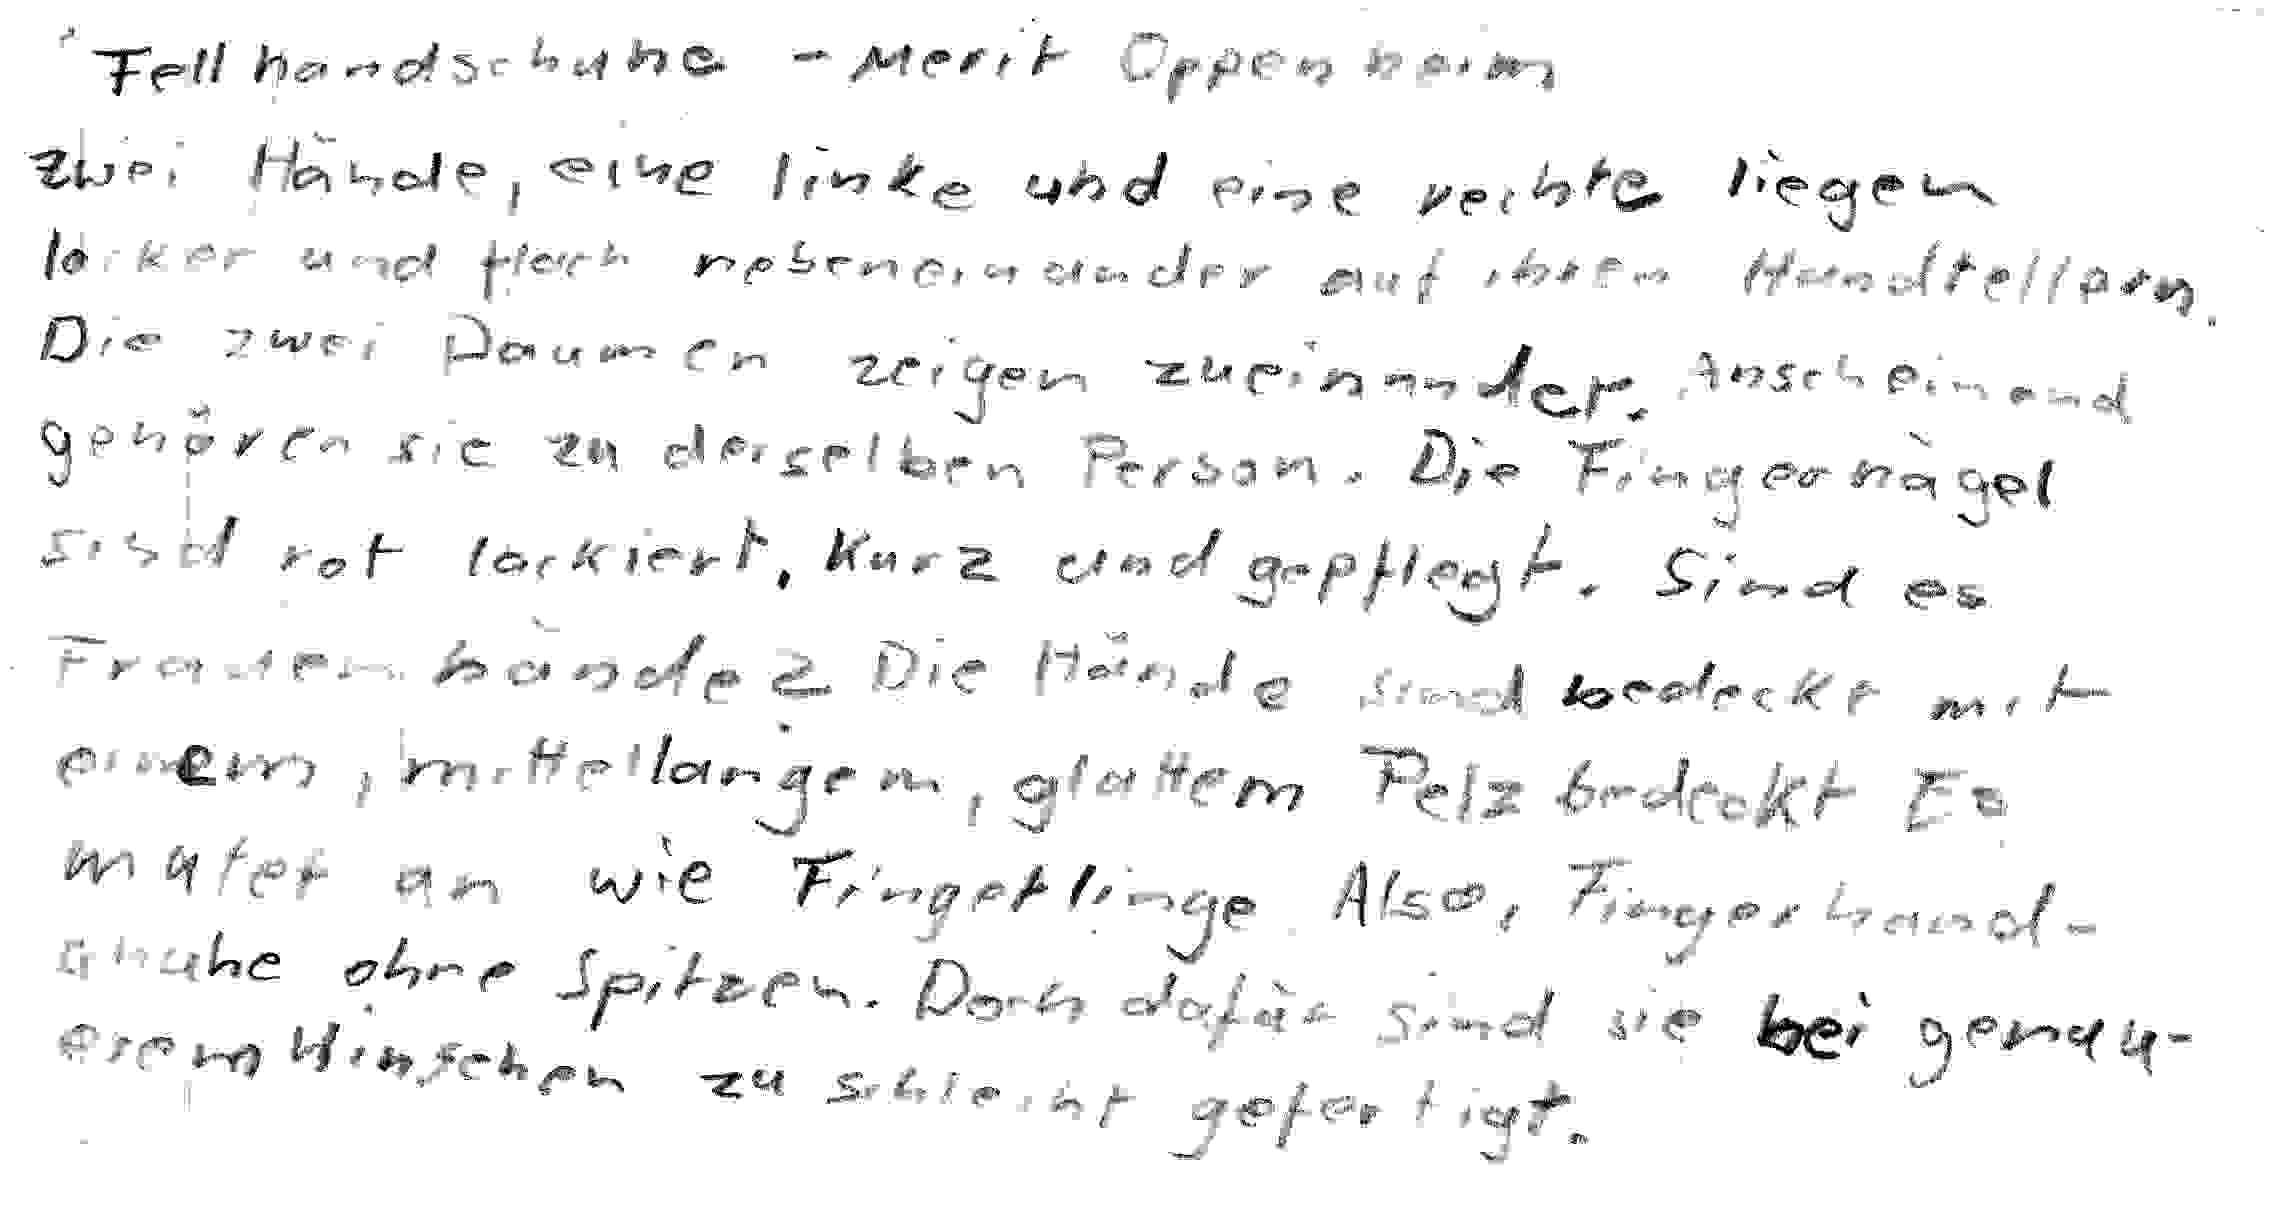 Fellhandschuhe - Merit Oppenheim
zwei Hände, eine linke und eine rechte liegen
locker und flach nebeneinander auf ihren Handtellern.
Die zwei Daumen zeigen zueinander. Anscheinend
gehören sie zu derselben Person. Die Fingernägel
sind rot lackiert, kurz und gepflegt. Sind es
Frauenhände? Die Hände sind bedeckt mit
einem, mittellangem, glattem Pelz bedeckt Es
mutet an wie Fingerlinge. Also, Fingerhand-
schuhe ohne Spitzen. Doch dafür sind sie bei genau-
erem Hinsehen zu schlecht gefertigt.